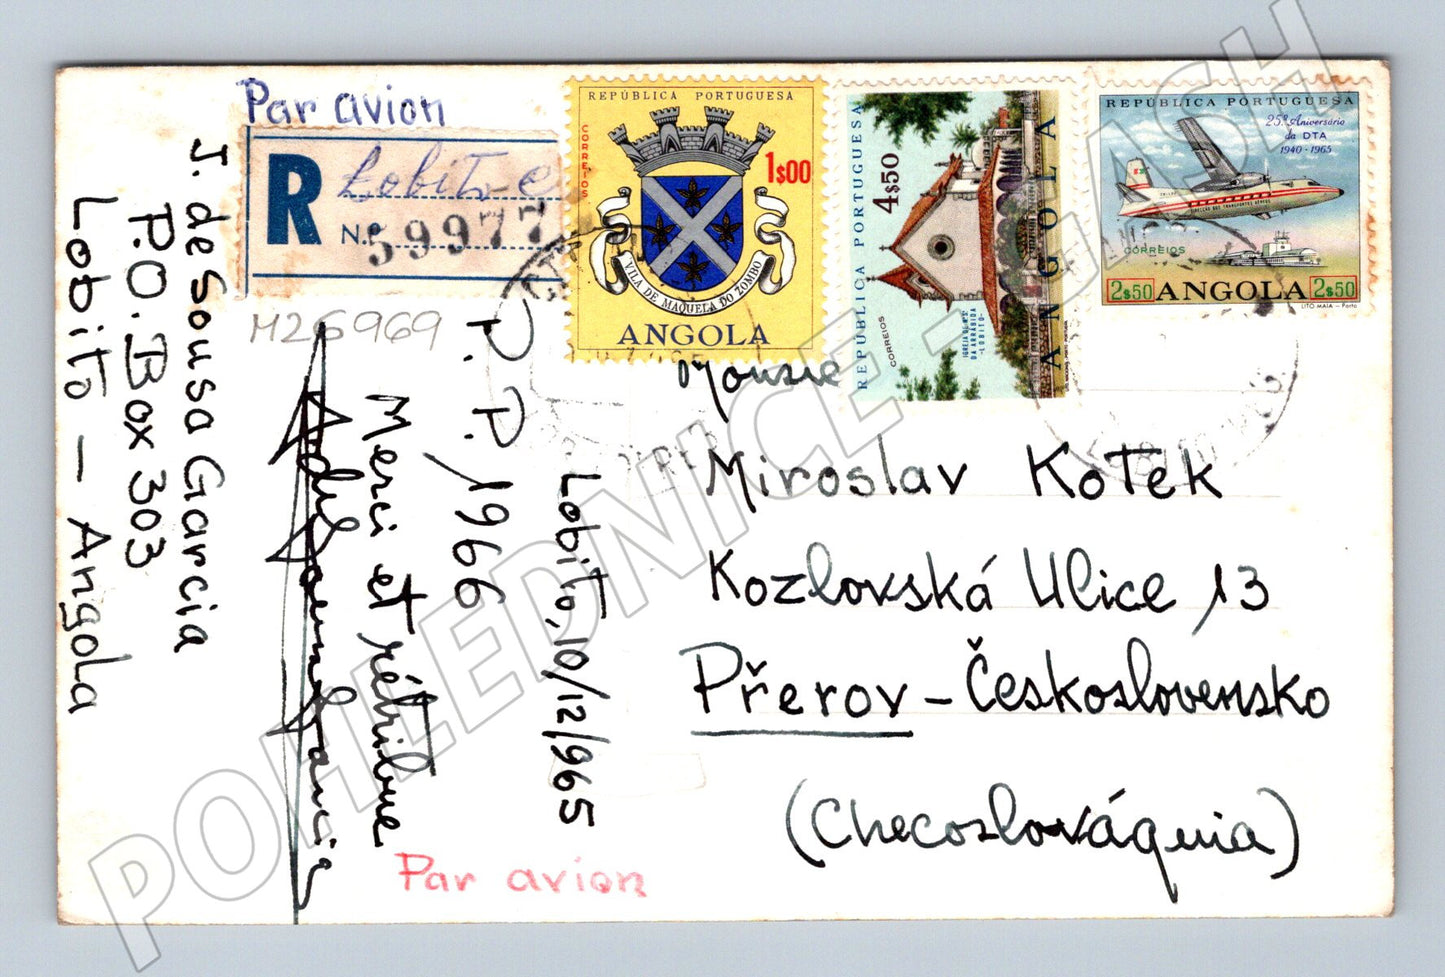 Par avion
R Lobito
N.º 59977
M26969
REPÚBLICA PORTUGUESA
CORREIOS
1$00
VILA DE MAQUELA DO ZOMBO
ANGOLA
REPÚBLICA PORTUGUESA
4$50
CORREIOS
IGREJA DE N.S.
DA ARRÁBIDA
-LOBITO-
ANGOLA
REPÚBLICA PORTUGUESA
25.º Aniversário
da DTA
1940-1965
DIRECÇÃO DOS TRANSPORTES AÉREOS
CORREIOS
2$50 ANGOLA 2$50
LITO MAIA - Porto
J. de Sousa Garcia
P.O. Box 303
Lobito - Angola
P. P. 1966
Merci et rétribue
Lobito, 10/12/965
Par avion
Miroslav Kotek
Kozlovská Ulice 13
Přerov - Československo
(Checoslováquia)
POHLEDNICE - CASH